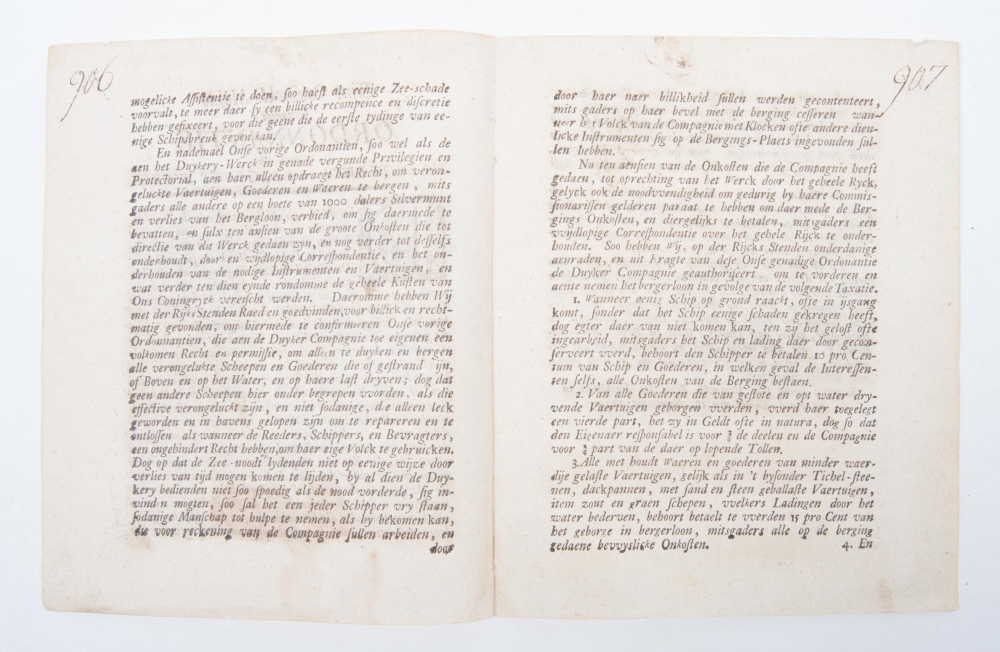 906
mogelicke Assistentie te doen, soo haest als eenige Zee-schade
voorvalt, te meer daer sy een billicke recompence en discretie
hebben gefixeert, voor die geene die de eerste tydinge van ee-
nige Schipsbreuk geven kan.
En nademael Onse vorige Ordonantien, soo wel als de
aen het Duykery-Werck in genade vergunde Previlegien en
Protectorial, aen haer alleen opdraegt het Recht, om veron-
geluckte Vaertuigen, Goederen en Waeren te bergen, mits
gaders alle andere op een boete van 1000 dalers Silvermunt
en verlies van het Bergloon, verbied, om sig daermede te
bevatten, en sulx ten ansien van de groote Onkosten die tot
directie van dit Werck gedaen zyn, en nog verder tot desselfs
onderhoudt, door en wijdlopige Correspondentie, en het on-
derhouden van de nodige Instrumenten en Vaertuigen, en
wat verder ten dien eynde rondomme de geheele Kusten van
Ons Coningryck vereischt werden. Daeromme hebben Wij
met der Rijks Stenden Raed en goedvinden, voor billick en recht-
matig gevonden, om hiermede te confirmeeren Onse vorige
Ordonnantien, die aen de Duyker Compagnie toe eigenen een
volkomen Recht en permissie, om alleen te duyken en bergen
alle verongelukte Scheepen en Goederen die of gestrand ijn,
of Boven en op het Water, en op haere last dryven; dog dat
geen andere Scheepen hier onder begrepen worden, als die
effective verongeluckt zijn, en niet sodanige, die alleen leck
geworden en in havens gelopen zijn om te repareren en te
ontlossen als wanneer de Reeders, Schippers, en Bevragters,
een ongehindert Recht hebben, om haer eige Volck te gebruicken.
Dog op dat de Zee-noodt lydenden niet op eenige wijze door
verlies van tijd mogen komen te lijden, by al dien de Duy-
kery bedienden niet soo spoedig als de nood vorderde, sig in-
vinden mogten, soo sal het een jeder Schipper vry staan,
sodanige Manschap tot hulpe te nemen, als hy bekomen kan,
die voor reckening van de Compagnie sullen arbeiden, en
door
907
door haer naer billikheid sullen werden gecontenteert,
mits gaders op haer bevel met de berging cesseren wan-
neer h't Volck van de Compagnie met Klocken ofte andere dien-
licke Instrumenten sig op de Bergings-Plaets ingevonden sul-
len hebben.
Nu ten aensien van de Onkosten die de Compagnie heeft
gedaen, tot oprechting van het Werck door het geheele Ryck,
gelyck ook de noodwendigheid om gedurig by haere Commis-
sionarissen gelderen paraat te hebben om daer mede de Ber-
gings Onkosten, en diergelijks te betalen, mitsgaders een
wijdlopige Correspondentie over het gehele Rijck te onder-
houden. Soo hebben Wij, op der Rijcks Stenden onderdanige
aenraden, en uit kragte van dese Onse genadige Ordonantie
de Duyker Compagnie geauthoriseert, om te vorderen en
aente nemen het bergerloon in gevolge van de volgende Taxatie.
1. Wanneer eenig Schip op grond raackt, ofte in ijsgang
komt, sonder dat het Schip eenige schaden gekregen heeft,
dog egter daer van niet komen kan, ten zij het gelost ofte
ingearbeid, mitsgaders het Schip en lading daer door gecon-
serveert werd, behoort den Schipper te betalen 10 pro Cen-
tum van Schip en Goederen, in welken geval de Interessen-
ten selfs, alle Onkosten van de Berging bestaen.
2. Van alle Goederen die van gestote en opt water dry-
vende Vaertuigen geborgen werden, werd haer toegelegt
een vierde part, het zy in Geldt ofte in natura, dog so dat
den Eigenaer responsabel is voor ¾ de deelen en de Compagnie
voor ¼ part van de daer op lopende Tollen.
3. Alle met houdt Waeren en goederen van minder waer-
dije gelaste Vaertuigen, gelijk als in 't bysonder Tichel-stee-
nen, dackpannen, met sand en steen geballaste Vaertuigen,
item zout en graen schepen, welkers Ladingen door het
water bederven, behoort betaelt te werden 15 pro Cent van
het geborge in bergerloon, mitsgaders alle op de berging
gedaene bewyslicke Onkosten.
4. En